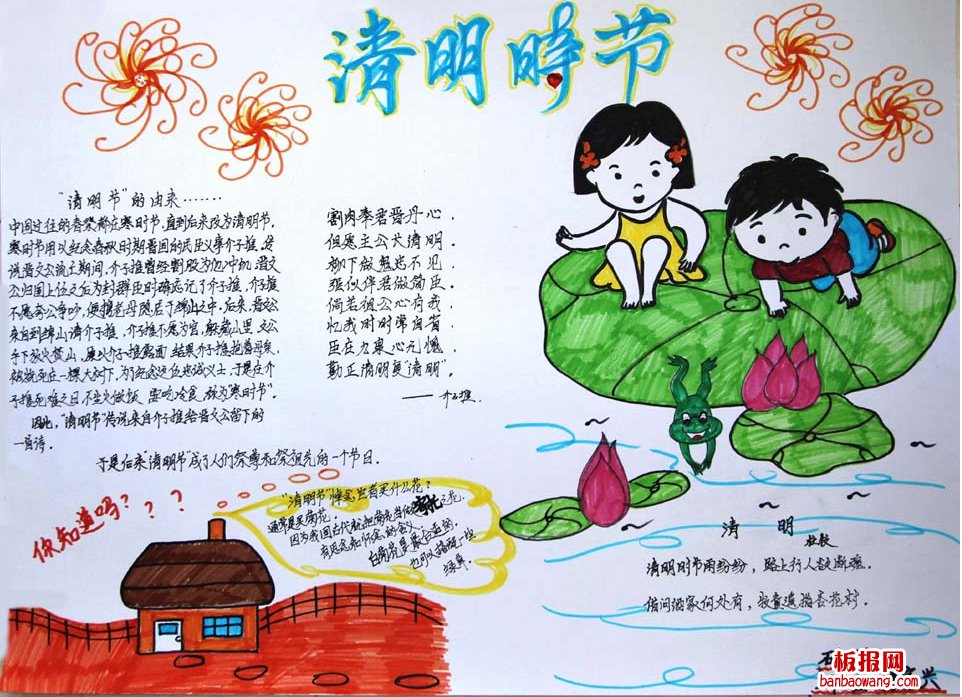 清明時节
"清明节"的由来……
中国过往的春祭都在寒时节,直到后来改为清明节。
寒时节用以纪念春秋时期晋国的民史义事介子推,传
说晋文公流亡期间,介子推曾经割股为他冲饥,晋文
公归国上位之后为封群臣时确忘记了介子推,介子推
不愿夸公争吵,便携老母隐居了绵山之中,后来,晋文公
亲自到绵山请介子推,介子推不愿为官,躲藏山里,文公
手下放火焚山,原火介子推露面,结果介子推抱着母亲
被烧死在一棵大树下,为了纪念这位忠诚义士,于是在介
子推死难之日不生火做饭,要吃冷食,称为寒时节"。
因此,"清明节"传说来自介子推给晋文公留下的
一首诗。
于是后来"清明节"成了人们祭尊和祭祖先的一个节日。
割肉奉君晋丹心。
但愿主公大清明。
柳下做鬼忠不见。
强似伴君做侑臣。
倘若祖公心有我。
忆我时时常自省。
臣在九泉心无愧。
勤正清明复清明"。
——介子推。
你知道吗???
"清明节"悼念逝者买什么花?
通常是买菊花。
因为我国古代就把菊花当做寄托之花。
有思念和怀念的含义。
白菊花是最合适的,
也可以搭配一些
绿草。
清 明
杜牧
清明时节雨纷纷,路上行人欲断魂。
借问酒家何处有,牧童遥指杏花村。
兴
板报网
banbaowang.com